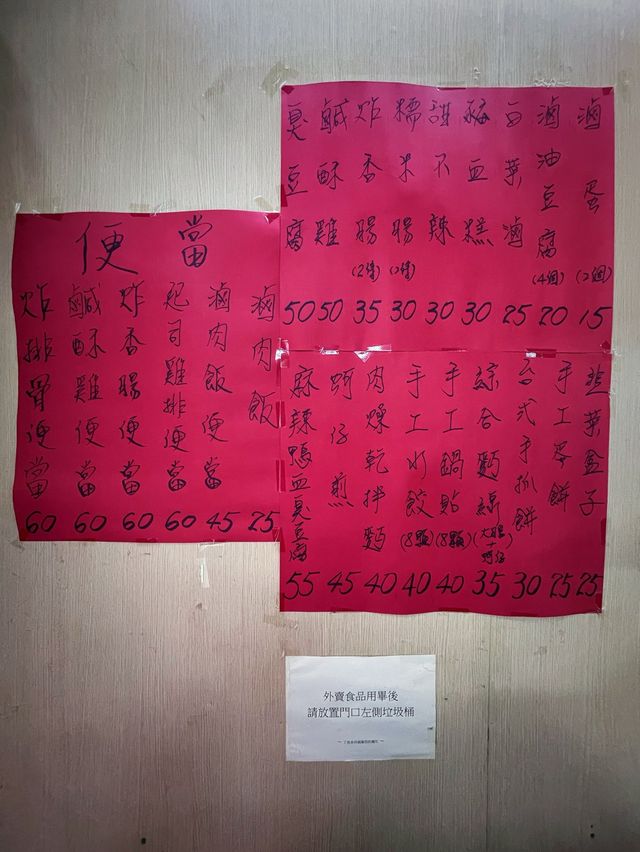 滷蛋(2個) 15
滷油豆腐(4個) 20
白菜滷 25
豬血糕 30
甜不辣 30
糯米腸(2條) 30
炸香腸(2條) 35
鹹酥雞 50
臭豆腐 50
韮菜盒子 25
手工蛋餅 25
台式手抓餅 30
綜合麵線(大腸+蚵仔) 35
手工鍋貼(8顆) 40
手工水餃(8顆) 40
肉燥乾拌麵 40
蚵仔煎 45
麻辣鴨血臭豆腐 55
便當
滷肉飯 25
滷肉飯便當 45
起司雞排便當 60
炸香腸便當 60
鹹酥雞便當 60
炸排骨便當 60
外賣食品用畢後
請放置門口左側垃圾桶